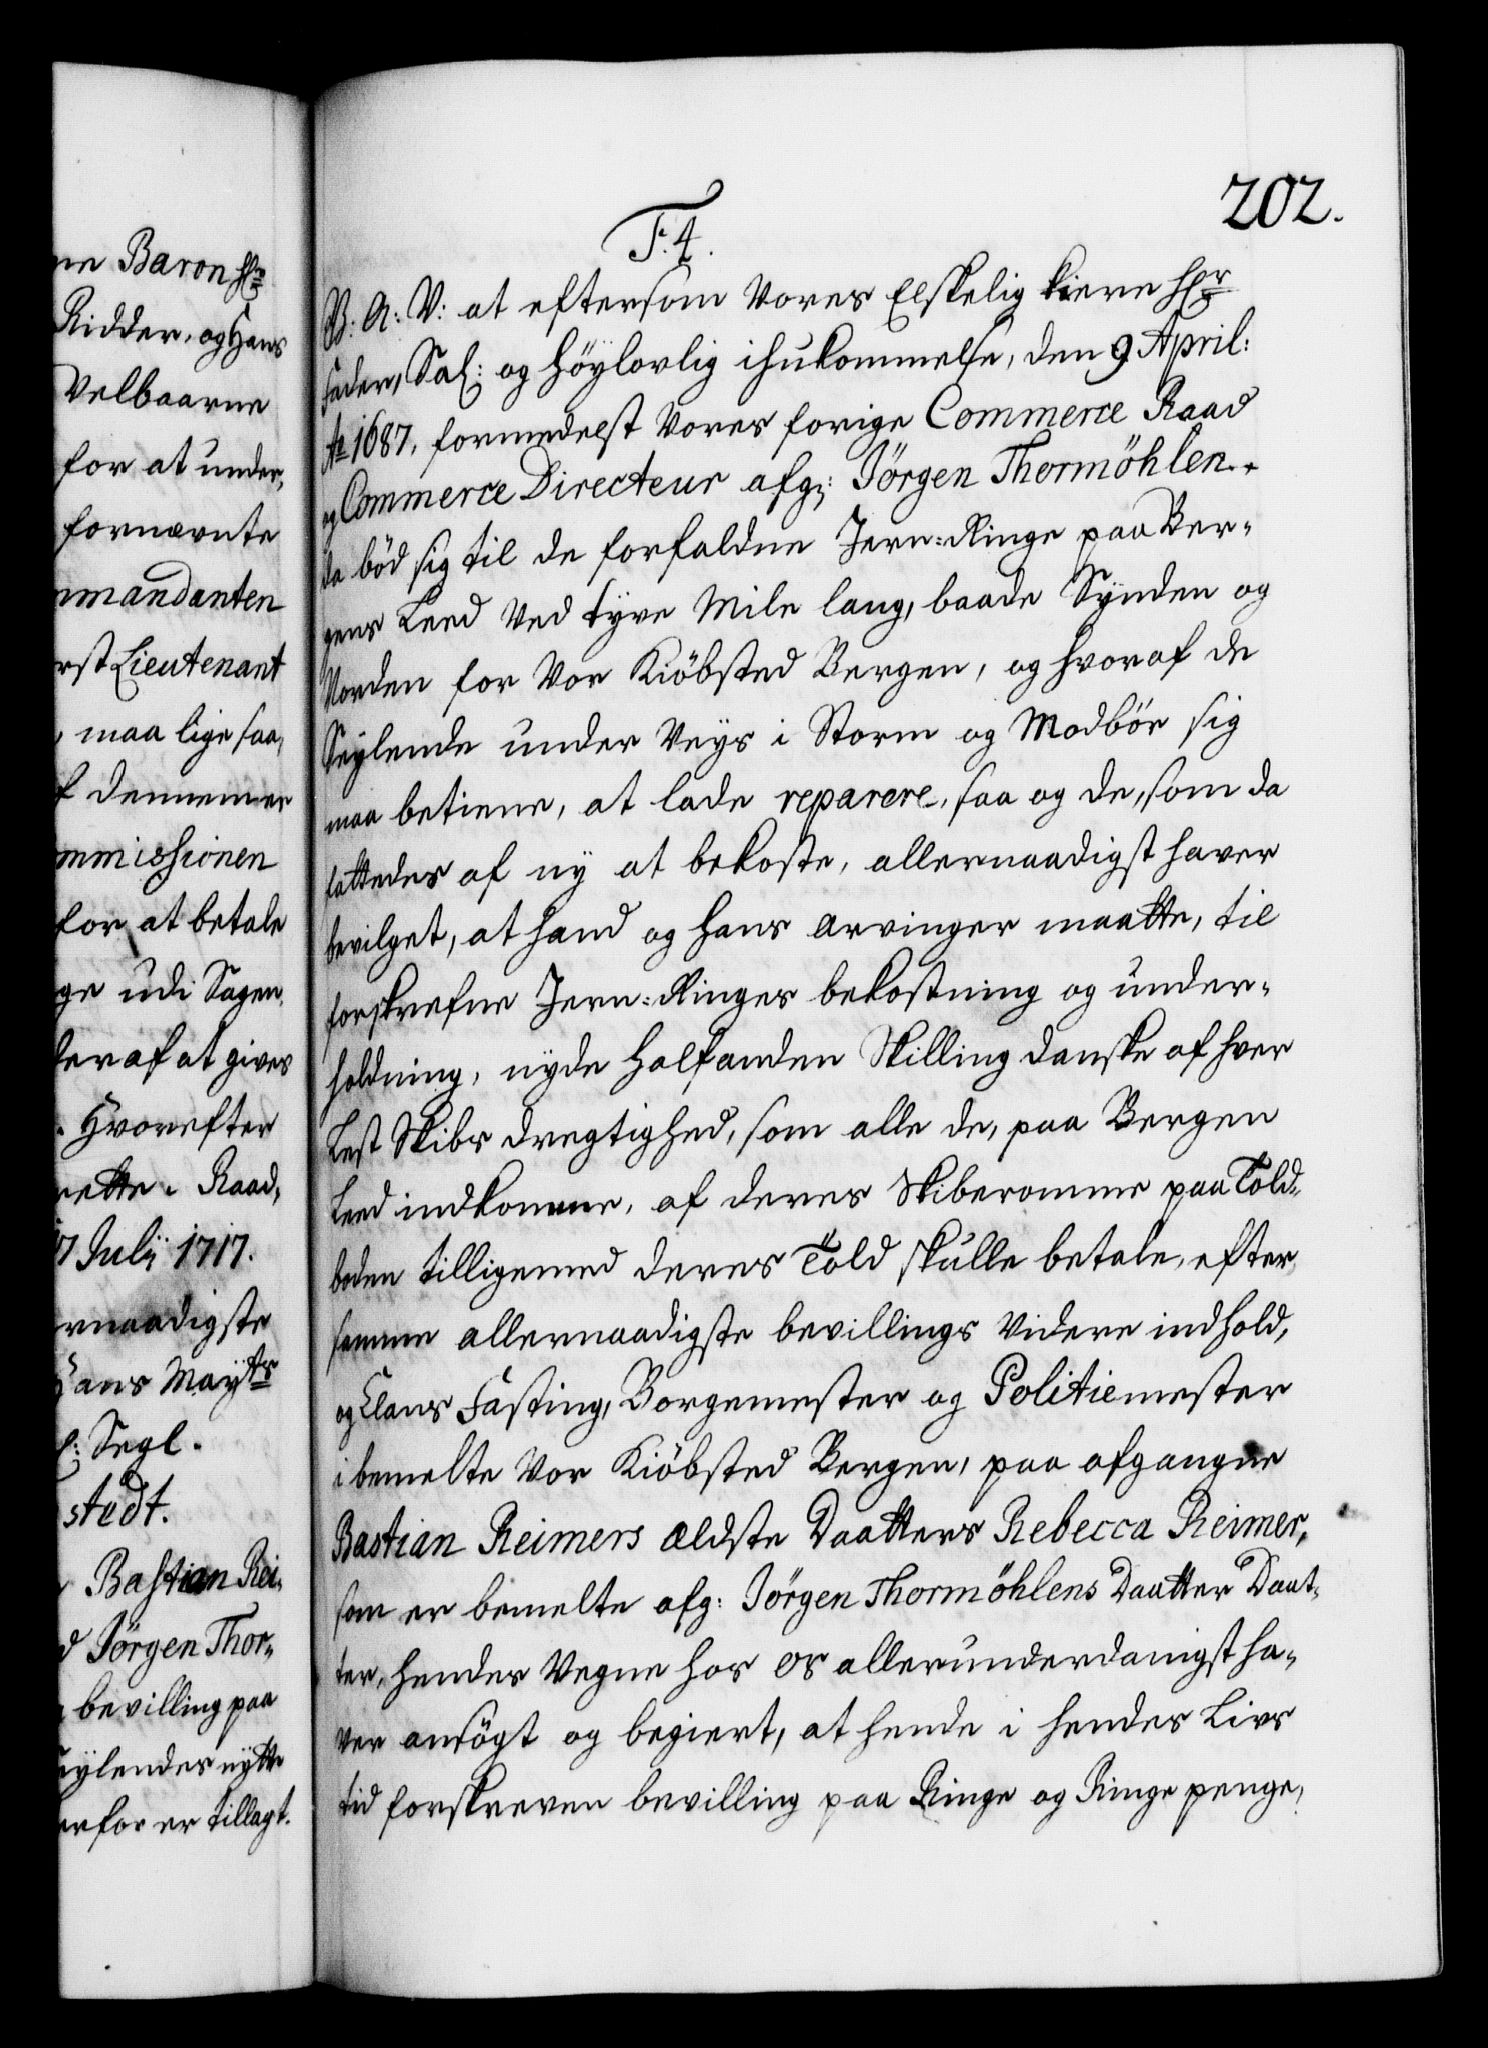 ne Baron Hr
Ridder, og Hans
Velbaarne
for at under,
fornævnte
mmandanten
rst Lieutenant
, maa lige saa,
f dennem er
mmissionen
for at betale
ge udi Sagen,
der af at gives
. Hvorefter
rette. Raad,
17 Julij 1717.
rnaadigste
Hans Mayts
l: Segl.
stedt.
Bastian Rei,
d Jörgen Thor,,
bevilling paa
Seylendes nÿtte
erfor er tillagt.
202.
F. 4.
G: A: V: at eftersom Vores Elskelig kiere Hr
Fader, Sal: og höylovlig ihukommelse, den 9 April:
Ao 1687. formedelst Vores forige Commerce Raad
og Commerce Directeur afg: Jörgen Thormöhlen
da böd sig til de forfaldne Jern=Ringe paa Ber,,
gens Leed Ved tyve Mile lang, baade Synden og
Norden for Vor Kiöbsted Bergen, og hvoraf de
Seylende under Veys i Storm og Modbör sig
maa betiene, at lade reparere, saa og de, som da
fattedes af nÿ at bekoste, allernaadigst haver
bevilget, at hand og hans arvinger maatte, til
forskrefne Jern=Ringes bekostning og under,,
holdning, nÿde halfanden Skilling danske af hver
Lest Skibs dregtighed, som alle de, paa Bergen
Leed indkomne, af deres Skiberomme paa Told,,
boden tilligemed deres Told skulle betale, efter
samme allernaadigste bevillings Videre indhold,
og Claus Fasting, Borgemester og Politiemester
i bemelte Vor Kiöbsted Bergen, paa afgangne
Bastian Reimers ældste Daatters Rebecca Reimer,
som er bemelte afg: Jörgen Thormöhlens Daatter Daat,,
ter, hendes Vegne hos os allerunderdanigst ha,,
ver ansögt og begiert, at hende i hendes Livs
tid forskreven bevilling paa Ringe og Ringe penge,